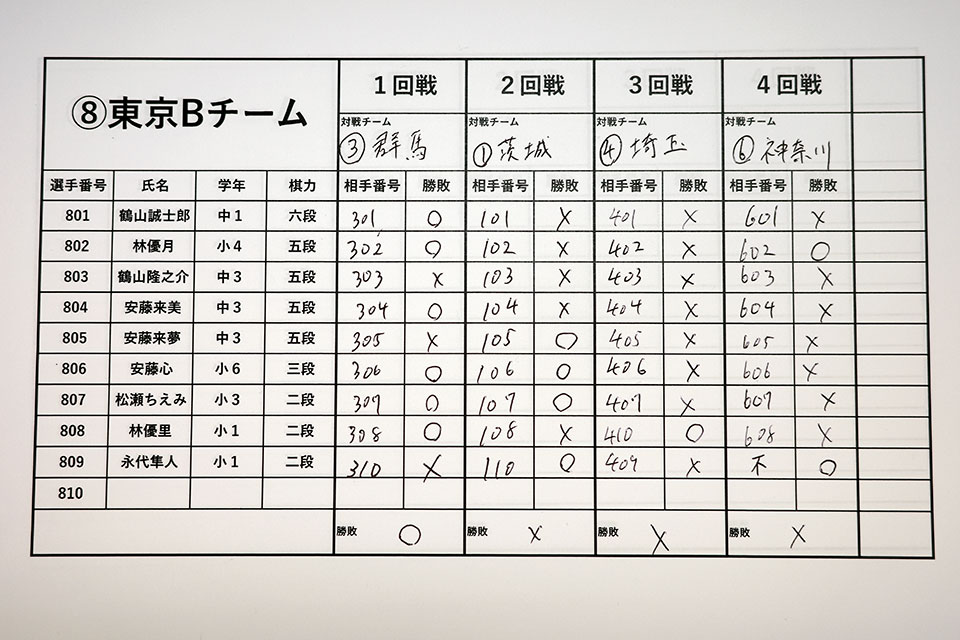 ⑧東京Bチーム 1回戦 2回戦 3回戦 4回戦
対戦チーム 対戦チーム 対戦チーム 対戦チーム
③群馬 ①茨城 ④埼玉 ⑥神奈川
選手番号 氏名 学年 棋力 相手番号 勝敗 相手番号 勝敗 相手番号 勝敗 相手番号 勝敗
801 鶴山誠士郎 中1 六段 301 ○ 101 × 401 × 601 ×
802 林優月 小4 五段 302 ○ 102 × 402 × 602 ○
803 鶴山隆之介 中3 五段 303 × 103 × 403 × 603 ×
804 安藤来美 中3 五段 304 ○ 104 × 404 × 604 ×
805 安藤来夢 中3 五段 305 × 105 ○ 405 × 605 ×
806 安藤心 小6 三段 306 ○ 106 ○ 406 × 606 ×
807 松瀬ちえみ 小3 二段 307 ○ 107 ○ 407 × 607 ×
808 林優里 小1 二段 308 ○ 108 × 410 ○ 608 ×
809 永代隼人 小1 二段 310 × 110 ○ 409 × 不 ○
810
勝敗 ○ 勝敗 × 勝敗 × 勝敗 ×